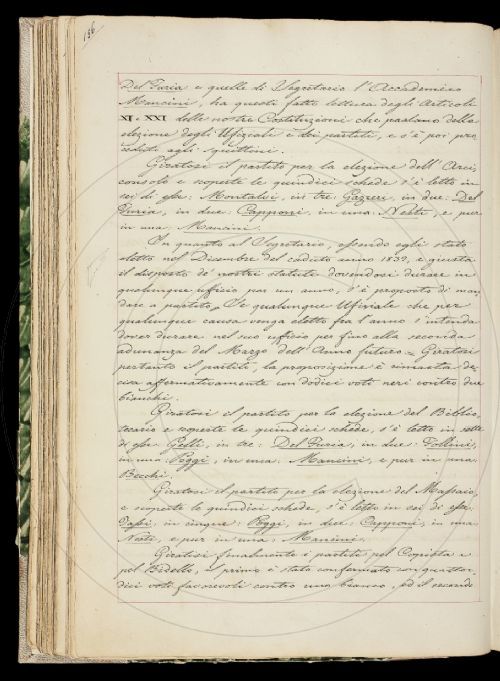 196
Del Furia e quelle di Segretario l'Accademico
Mancini, ha questi fatto lettura degli Articoli
XI e XXI delle nostre Costituzioni che parlano della
elezione degli Ufiziali e dei partiti, e s'è poi pro
ceduto agli squittini.
Giratosi il partito per la elezione dell'Arci,
consolo e scoperte le quindici schede s'è letto in
sei di esse: Montalvi, in tre: Gazzeri, in due: Del
Furia, in due: Capponi, in una: Nesti, e pur
in una: Mancini.
In quanto al Segretario, essendo egli stato
eletto nel Dicembre del caduto anno 1839, e giusta
il disposto de' nostri statuti dovendosi durare in
qualunque ufficio per un anno, s'è proposto di man
dare a partito "Se qualunque Ufiziale che per
qualunque causa venga eletto fra l'anno s'intenda
dover durare nel suo ufficio per fino alla seconda
adunanza del Marzo dell'Anno futuro = Giratosi
pertanto il partito, la proposizione è rimasta de,
cisa affermativamente con dodici voti neri contro due
bianchi.
Giratosi il partito per la elezione del Biblio,
tecario e scoperte le quindici schede, s'è letto in sette
di esse: Gelli, in tre: Del Furia, in due: Follini,
in una: Poggi, in una: Mancini, e pur in una:
Becchi.
Giratosi il partito per la elezione del Massaio,
e scoperte le quindici schede, s'è letto in sei di esse,
in cinque: Poggi, in due: Capponi, in una
Nesti, e pur in una: Mancini.
Giratosi finalmente i partiti pel Copista e
pel Bidello, il primo è stato confermato con quattor,
dici voti favorevoli contro uno bianco, ed il secondo